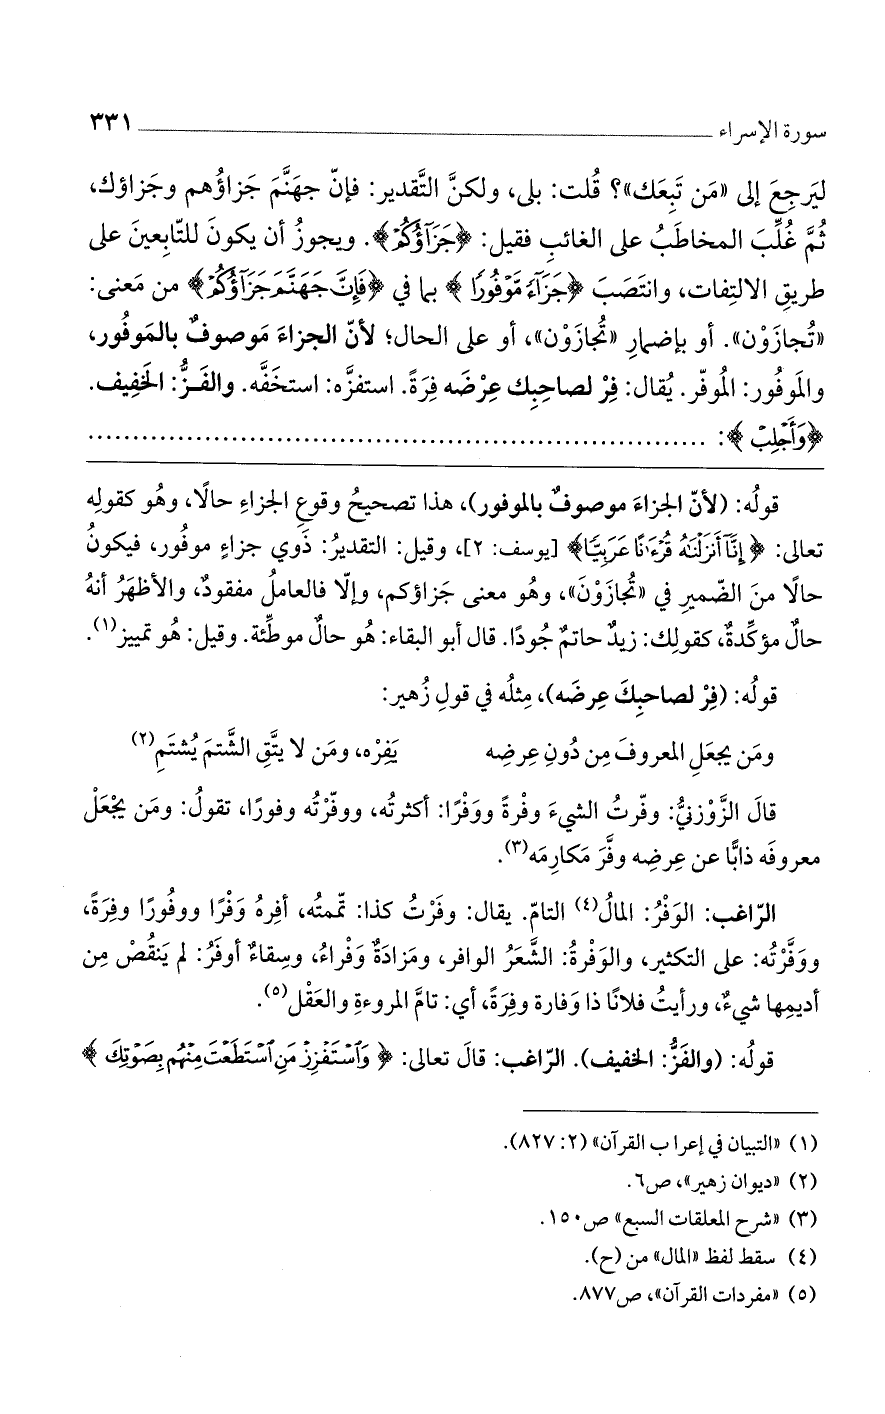 سورة الإسراء ٣٣١
ليَرجِعَ إلى «مَن تَبِعَك»؟ قُلت: بلى، ولكنَّ التَّقدير: فإنّ جهَنَّمَ جَزاؤُهم وجَزاؤك،
ثُمَّ غُلِّبَ المخاطَبُ على الغائبِ فقيل: ﴿جَزَآؤُكُمْ﴾. ويجوزُ أن يكونَ للتّابِعينَ على
طريقِ الالتِفات، وانتَصَبَ ﴿جَزَآءً مَّوْفُورًا﴾ بما في ﴿فَإِنَّ جَهَنَّمَ جَزَآؤُكُمْ﴾ من مَعنى:
«تُجازَوْن». أو بإضمارِ «تُجازَوْن»، أو على الحال؛ لأنّ الجزاءَ مَوصوفٌ بالمَوفُور،
والمَوفُور: المُوفّر. يُقال: فِرْ لصاحِبِك عِرْضَه فِرَةً. استفزَّه: استخَفَّه. والفَـزُّ: الخَفِيف.
﴿وَأَجْلِبْ﴾: ................................................................
قولُه: (لأنّ الجزاءَ موصوفٌ بالموفور)، هذا تصحيحُ وقوعِ الجزاءِ حالًا، وهُو كقولِه
تعالى: ﴿إِنَّآ أَنزَلْنَٰهُ قُرْءَٰنًا عَرَبِيًّا﴾ [يوسف: ٢]، وقيل: التقديرُ: ذَوي جزاءٍ موفُور، فيكونُ
حالًا منَ الضّميرِ في «تُجازَوْنَ»، وهُو معنى جَزاؤكم، وإلّا فالعاملُ مفقودٌ، والأظهَرُ أنهُ
حالٌ مؤكِّدةٌ، كقولِك: زيدٌ حاتمٌ جُودًا. قال أبو البقاء: هُو حالٌ موطِّئة. وقيل: هُو تمييز(١).
قولُه: (فِرْ لصاحبِكَ عِرضَه)، مِثلُه في قولِ زُهير:
ومَن يجعَلِ المعروفَ مِن دُونِ عِرضِه يَفِرْه، ومَن لا يتَّقِ الشَّتمَ يُشتَمِ(٢)
قالَ الزَّوْزنيُّ: وفّرتُ الشيءَ وفْرةً ووَفْرًا: أكثرتُه، ووفّرْتُه وفورًا، تقولُ: ومَن يجْعَلْ
معروفَه ذابًّا عن عِرضِه وفَّرَ مَكارِمَه(٣).
الرّاغب: الوَفْرُ: المالُ(٤) التامّ. يقال: وفَرْتُ كذا: تمّمتُه، أفِرهُ وَفْرًا ووفُورًا وفِرَةً،
ووَفَّرْتُه: على التكثير، والوَفْرةُ: الشَّعَرُ الوافر، ومَزادَةٌ وَفْراءُ، وسِقاءٌ أوفَرُ: لم يَنقُصْ مِن
أديمِها شيءٌ، ورأيتُ فلانًا ذا وَفارة وفِرَةً، أي: تامَّ المروءةِ والعَقْل(٥).
قولُه: (والفَزُّ: الخفيف). الرّاغب: قالَ تعالى: ﴿وَٱسْتَفْزِزْ مَنِ ٱسْتَطَعْتَ مِنْهُم بِصَوْتِكَ﴾
(١) «التبيان في إعراب القرآن» (٢: ٨٢٧).
(٢) «ديوان زهير»، ص٦.
(٣) «شرح المعلقات السبع» ص١٥٠.
(٤) سقط لفظ «المال» من (ح).
(٥) «مفردات القرآن»، ص٨٧٧.